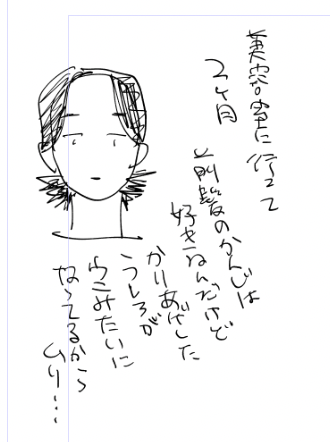 美容室に行って
2ヶ月
前髪のかんじは
好きなんだけど
かりあげした
うしろが
ウニみたいに
なってるから
ムリ…